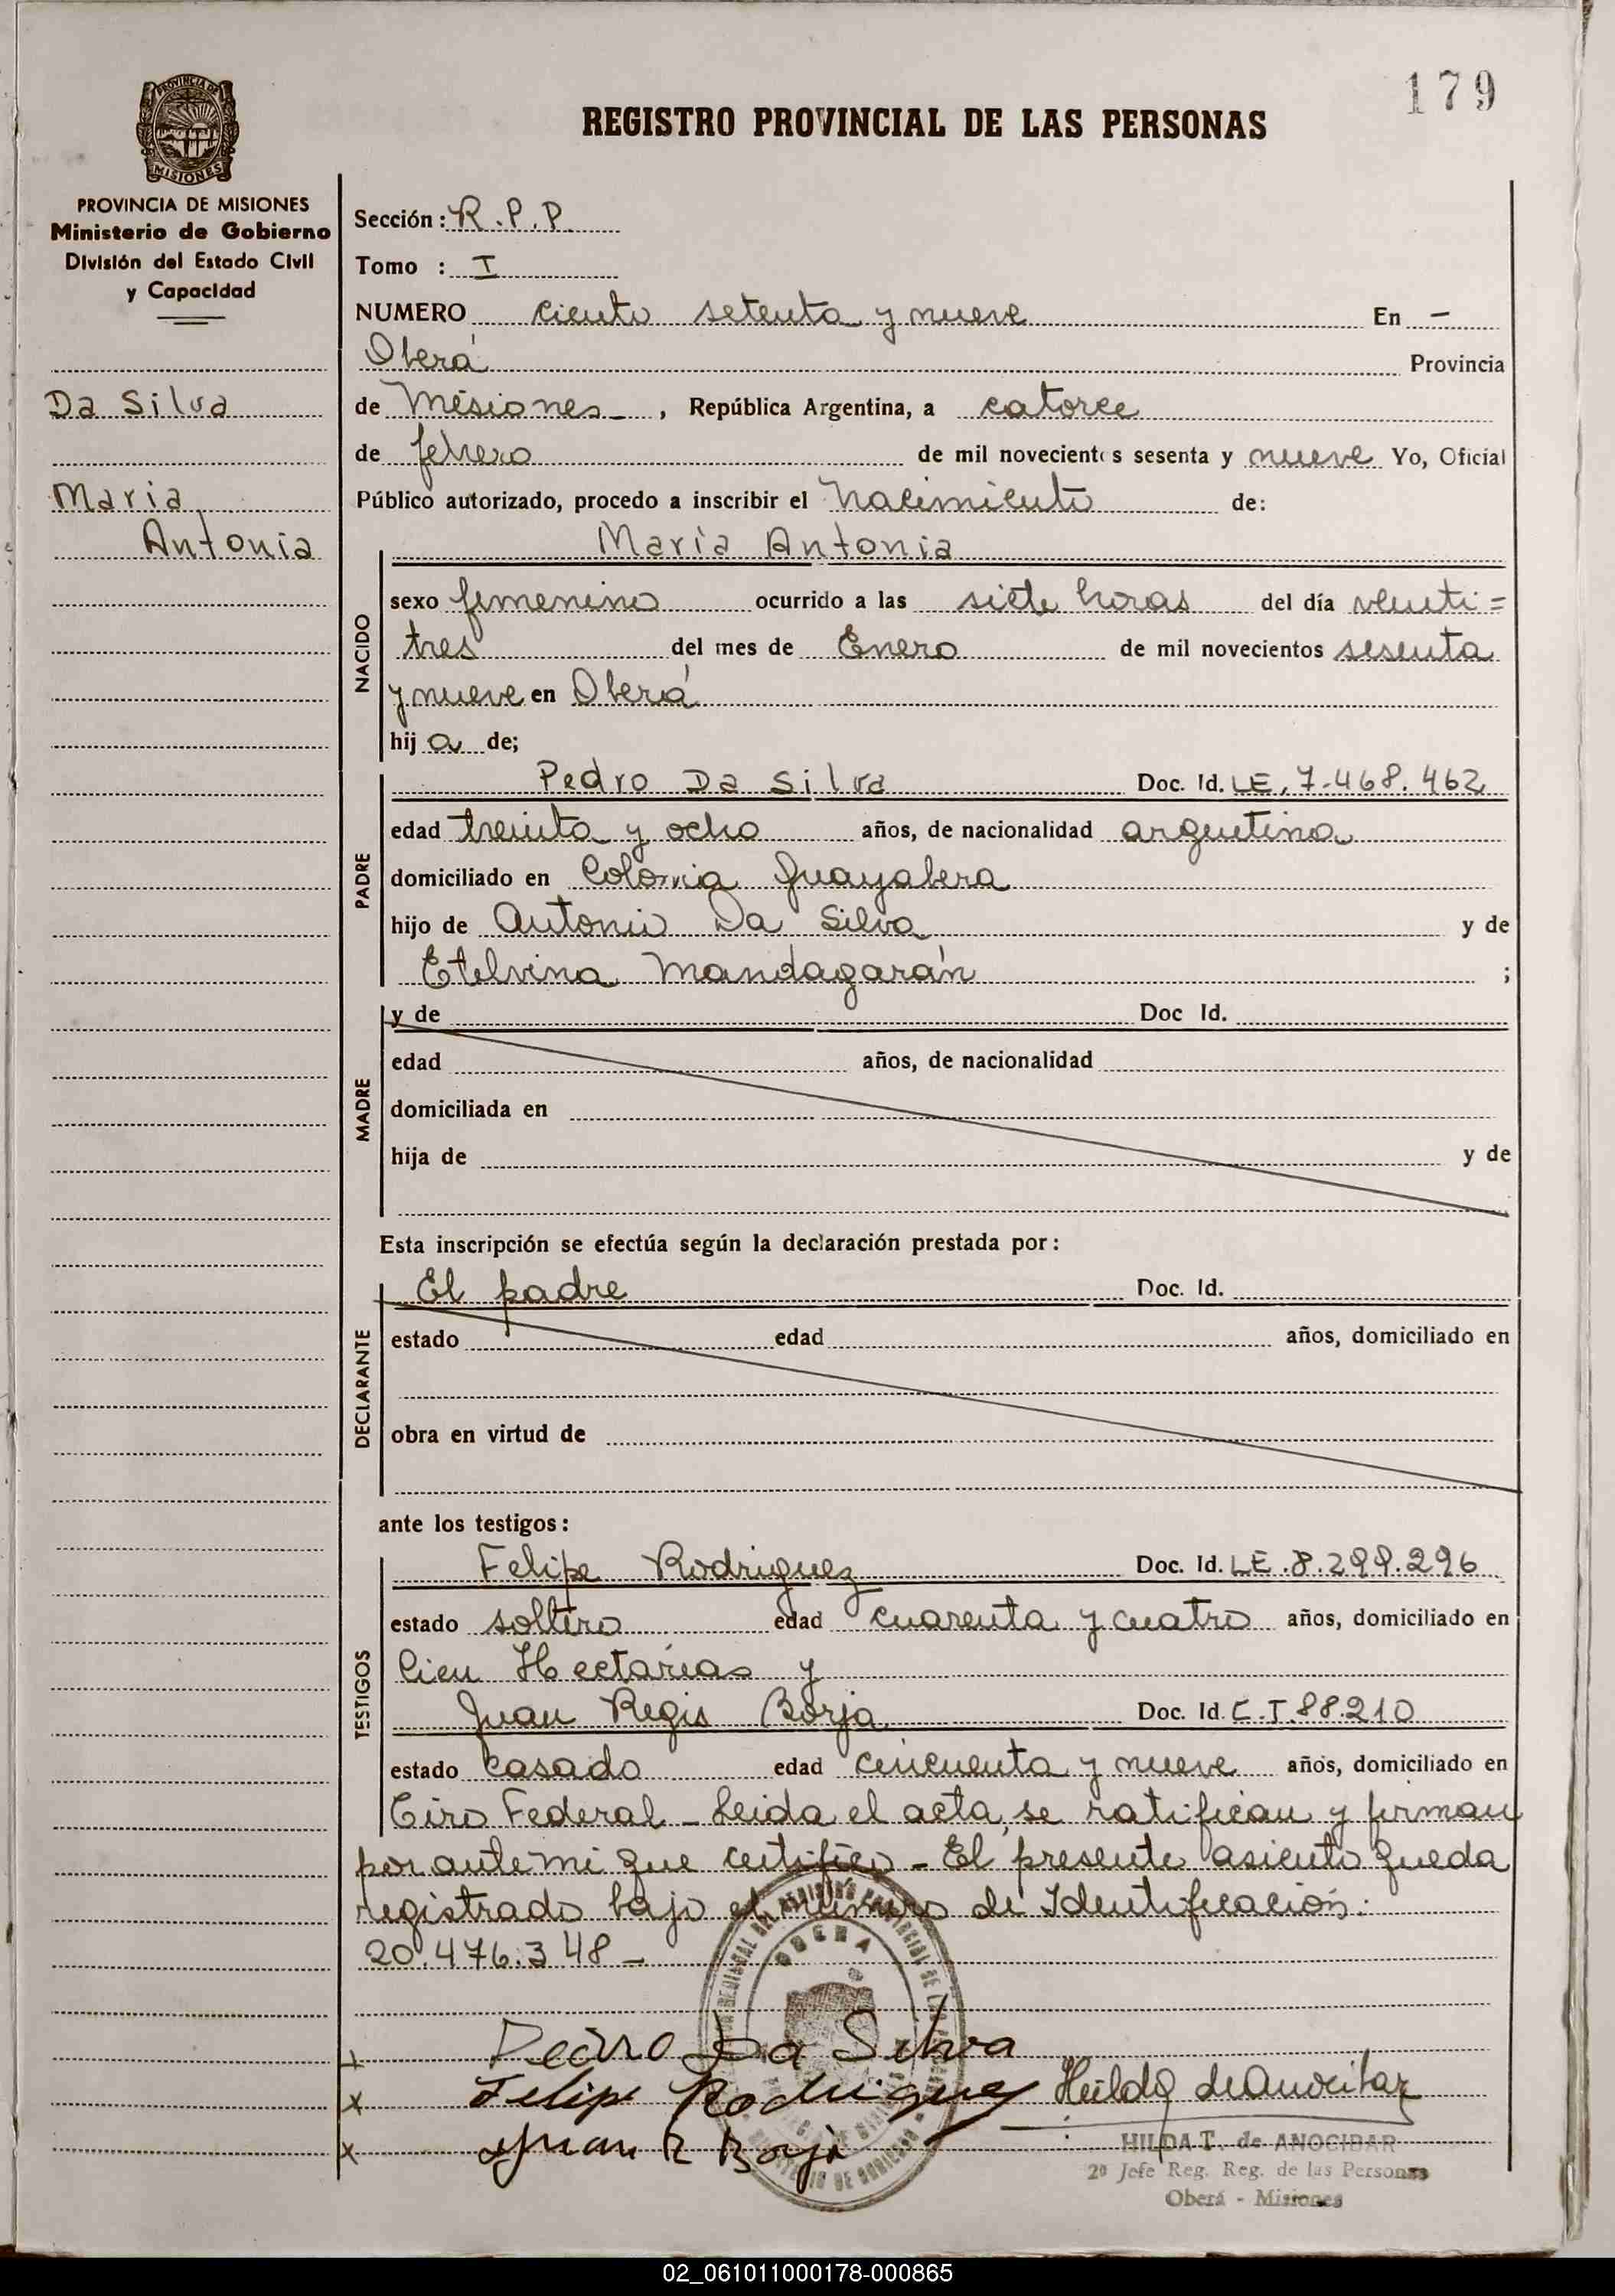 179
REGISTRO PROVINCIAL DE LAS PERSONAS
PROVINCIA DE
MISIONES
PROVINCIA DE MISIONES
Ministerio de Gobierno
División del Estado Civil
y Capacidad
Da Silva
Maria
Antonia
Sección: R.P.P.
Tomo : I
NUMERO ciento setenta y nueve En —
Oberá Provincia
de Misiones , República Argentina, a catorce
de febrero de mil novecientos sesenta y nueve Yo, Oficial
Público autorizado, procedo a inscribir el Nacimiento de:
NACIDO
María Antonia
sexo femenino ocurrido a las siete horas del día venti=
tres del mes de Enero de mil novecientos sesenta
y nueve en Oberá
hij a de;
PADRE
Pedro Da Silva Doc. Id. LE. 7.468.462
edad treinta y ocho años, de nacionalidad argentina
domiciliado en Colonia Guayabera
hijo de Antonio Da Silva y de
Etelvina Mandagarán ;
MADRE
y de Doc Id.
edad años, de nacionalidad
domiciliada en
hija de y de
Esta inscripción se efectúa según la declaración prestada por:
DECLARANTE
El padre Doc. Id.
estado edad años, domiciliado en
obra en virtud de
ante los testigos:
TESTIGOS
Felipe Rodriguez Doc. Id. LE.8.299.296
estado soltero edad cuarenta y cuatro años, domiciliado en
Cien Hectáreas y
Juan Regis Borja Doc. Id. C.I.88.210
estado casado edad cincuenta y nueve años, domiciliado en
Tiro Federal - Leida el acta, se ratifican y firman
por ante mi que certifico - El presente asiento queda
registrado bajo el número de Identificación:
20.476.348 -
OBERA
Pedro Da Silva
Felipe Rodriguez
Juan R Borja
HILDA T. de ANOCIBAR
2º Jefe Reg. Reg. de las Personas
Oberá - Misiones
02_061011000178-000865